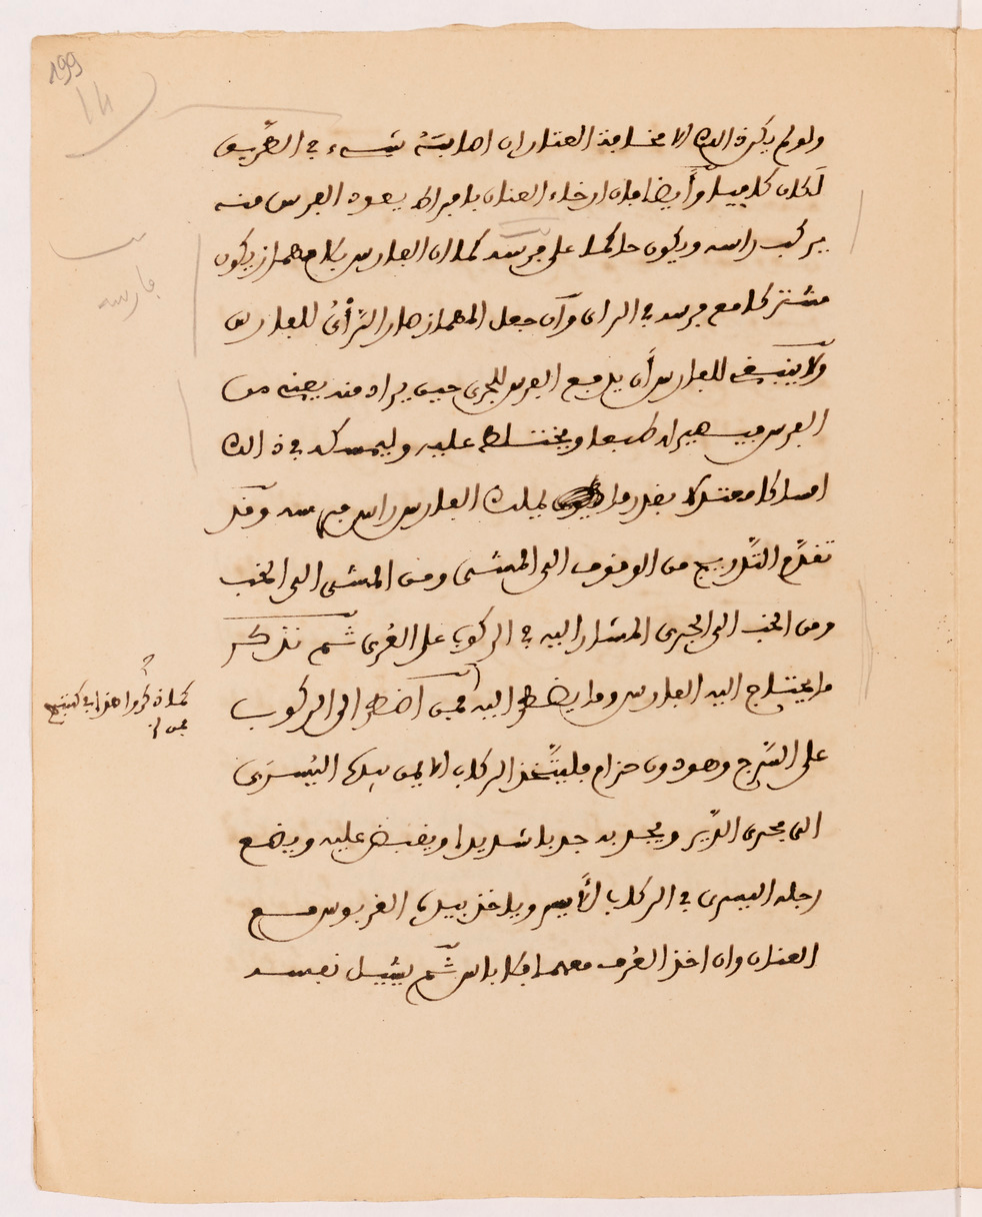 199
ولو لم يكن في ذالك الا مخافة العثار ان اصابته شيء في الطريق
لكان كافيا وأيضا فان ارخاء العنان بافراط يعود الفرس منه
يركب راسه ويكون حاكما على فرسه كما ان الفارس بلا مهماز يكون
مشتركا مع فرسه في الراى وان جعل المهماز صار الرأى للفارس
ولا ينبغى للفارس أن يدفع الفرس للجرى حين يراد منه بعينه من
الفرس فيسهير له طبعا ويختلط عليه وليمسكه في ذالك
امساكا معتدلا بقدر ما يملك الفارس راس فرسه وقد
تقدم التدريج من الوقوف الى المشى ومن المشى الى الخبب
ومن الخبب الى الجرى المشار اليه في الركوب على العرى ثم نذكر
ما يحتاج اليه الفارس وما يضطر اليه فمن اضطر الى الركوب
على السرج وهو دون حزام فليتخذ الركاب الايمن بيده اليسرى
الى مجرى الدير ويجبد به جبدا شديدا ويقبض عليه ويضع
رجله اليسرى في الركاب الأيسر وياخذ بيده القربوس مع
العنان وان اخذ العرف معهما فلا باس ثم يشيل نفسه
فارسه
كما ذكروا هذا في كتبهم